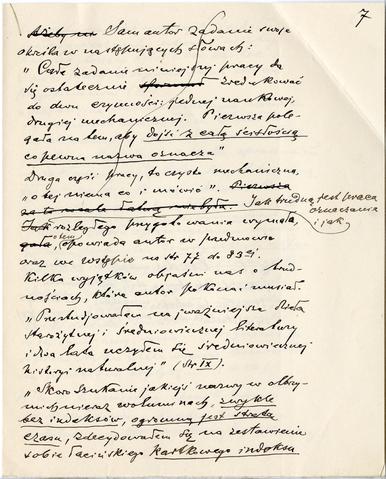 7
Ażeby na Sam autor zadanie swoje
określa w następujących słowach:
"Całe zadanie niniejszej pracy da
się ostatecznie zredukować
do dwu czynności: jednej naukowej,
drugiej mechanicznej. Pierwsza pole-
gała na tem, aby dojść z całą ścisłością
co pewna nazwa oznacza"
Druga część pracy, to czysto mechaniczna,
"o tej niema co i mówić". Pierwsza
za to wcale łatwą nie była. Jak trudną jest praca
oznaczania
Jak rozległego przygotowania wymaga, i jak
gała, o tem opowiada autor w przedmowie
oraz we wstępie na str 77 do 83ej.
Kilka wyjątków objaśni nas o trud-
nościach, które autor pokonać musiał.
"Przestudjowałem najważniejsze dzieła
starożytnej i średniowiecznej literatury
i dwa lata uczyłem się średniowiecznej
historyi naturalnej" (str IX).
"Skoro szukanie jakiejś nazwy w olbrzy-
mich nieraz woluminach, zwykle
bez indeksów, ogromną jest stratą
czasu, zdecydowałem się na zestawienie
sobie łacińskiego kartkowego indeksu